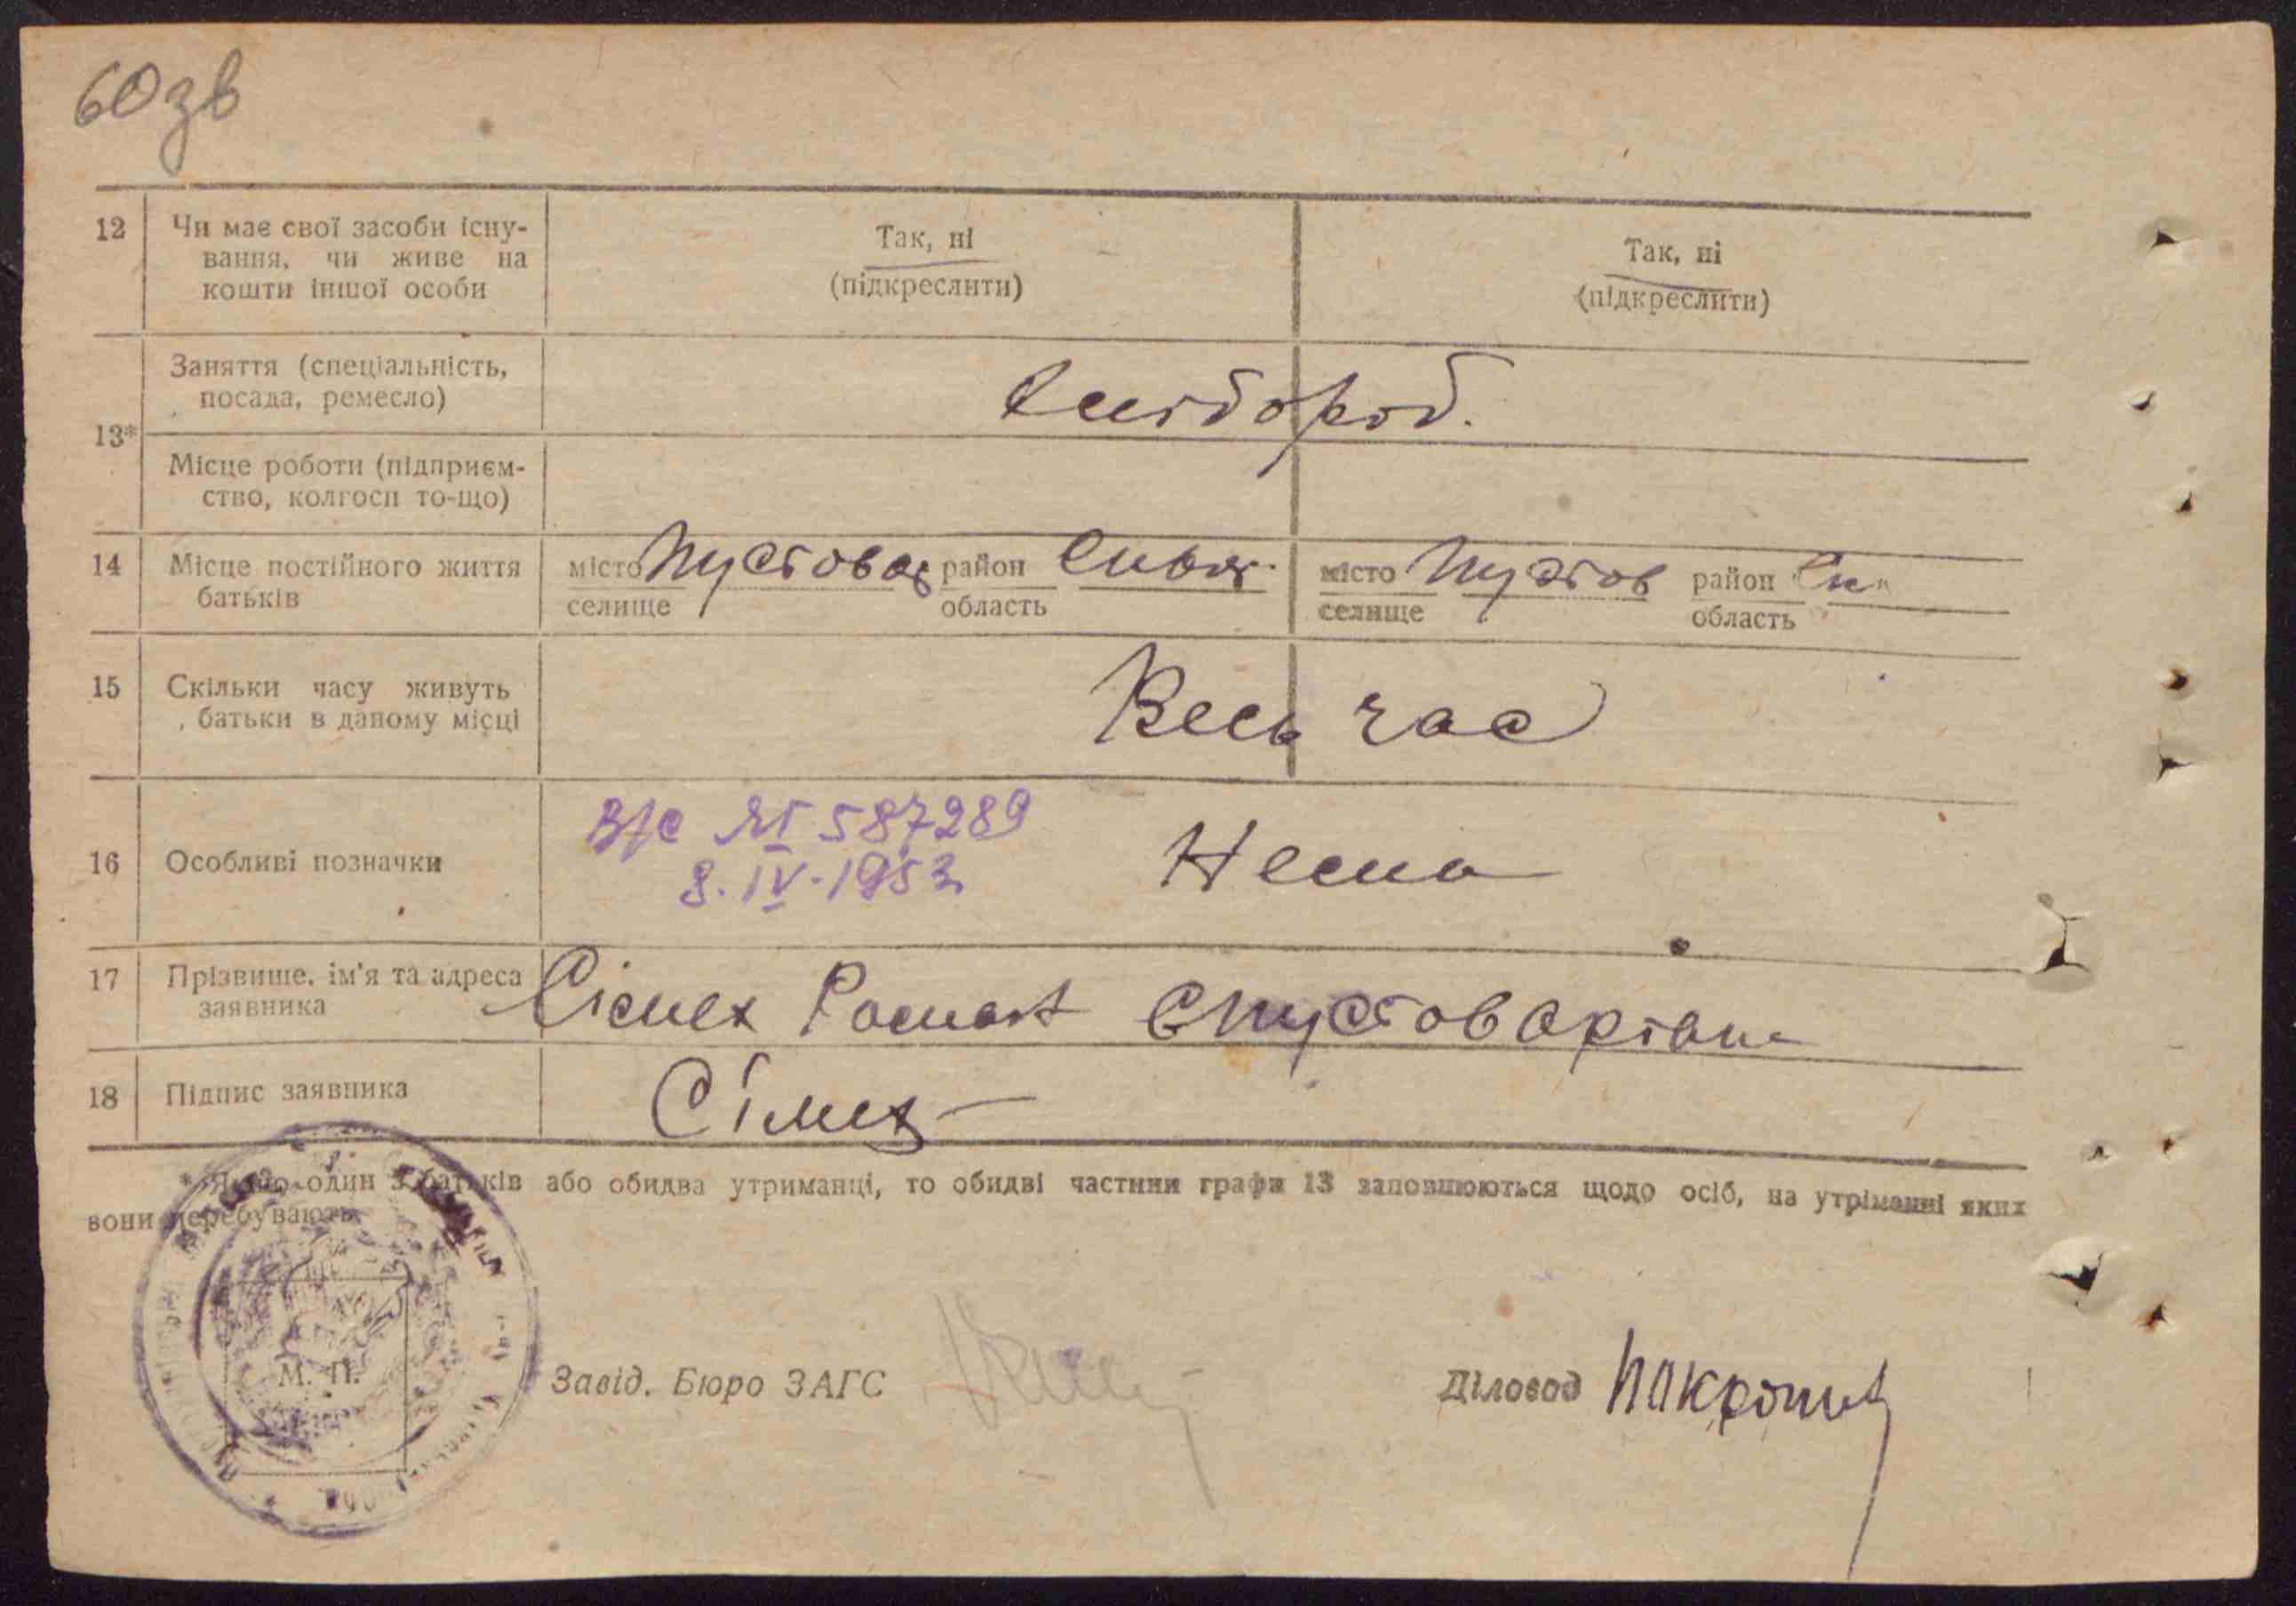 60 зв
12 Чи має свої засоби існу-
вання, чи живе на
кошти іншої особи
Так, ні
(підкреслити)
Так, ні
(підкреслити)
13*
Заняття (спеціальність,
посада, ремесло)
хлібороб.
Місце роботи (підприєм-
ство, колгосп то-що)
14 Місце постійного життя
батьків
місто Пустовар район Сквир.
селище область
місто Пустов район Ск
селище область
15 Скільки часу живуть
батьки в даному місці
Весь час
16 Особливі позначки
587289
8.IV.1953
Нема
17 Прізвище, ім'я та адреса
заявника
Сімех Роман с Пустоварівка
18 Підпис заявника
Сімех
* Якщо один з батьків або обидва утриманці, то обидві частини графи 13 заповнюються щодо осіб, на утріманні яких
вони перебувають.
М. П.
Завід. Бюро ЗАГС
Діловод